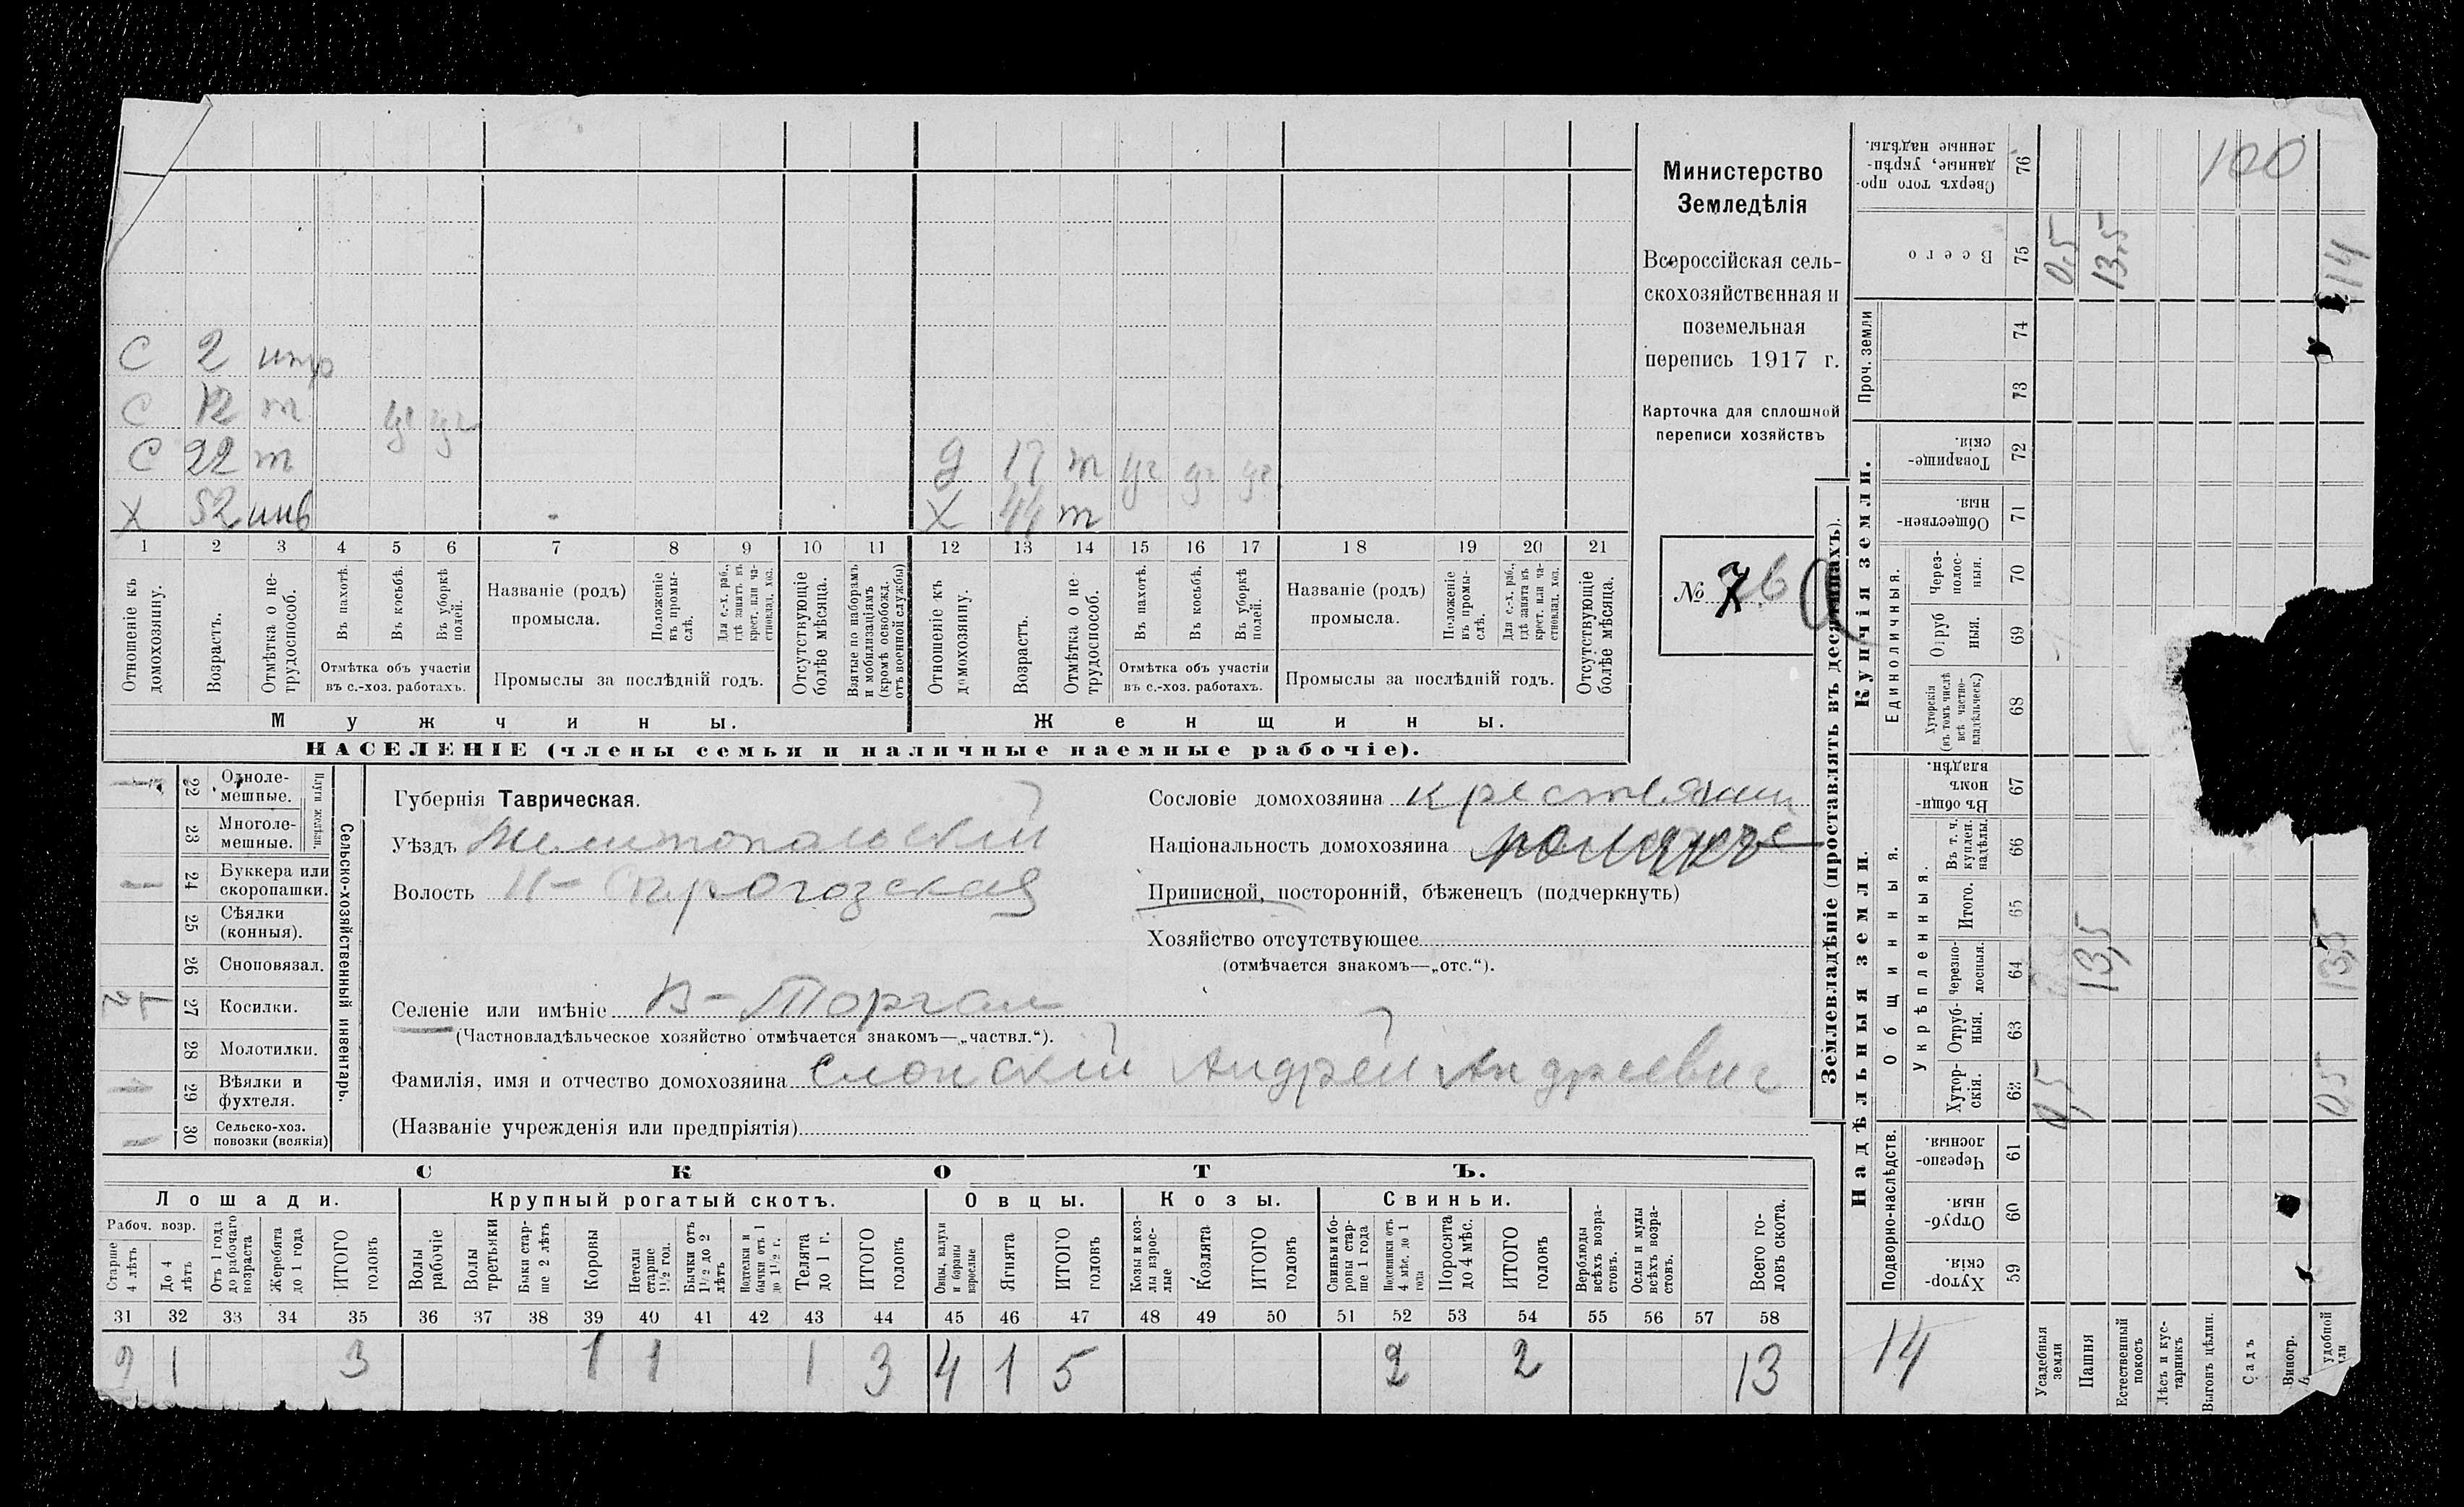 С 2 нтр
С 12 т уч уч
С 22 т Д 17 т уч уч уч
Х 52 инв Х 44 т
1 2 3 4 5 6 7 8 9 10 11 12 13 14 15 16 17 18 19 20 21
Отношеніе къ домохозяину.
Возрастъ.
Отмѣтка о нетрудоспособ.
Въ пахотѣ.
Въ косьбѣ.
Въ уборкѣ полей.
Отмѣтка объ участіи въ с.-хоз. работахъ.
Названіе (родъ) промысла.
Положеніе въ промыслѣ.
Для с.-х. раб., гдѣ занятъ въ крест. или частновлад. хоз.
Промыслы за послѣдній годъ.
Отсутствующіе болѣе мѣсяца.
Взятые по наборамъ и мобилизаціямъ (кромѣ освобожд. отъ военной службы)
Отношеніе къ домохозяину.
Возрастъ.
Отмѣтка о нетрудоспособ.
Въ пахотѣ.
Въ косьбѣ.
Въ уборкѣ полей.
Отмѣтка объ участіи въ с.-хоз. работахъ.
Названіе (родъ) промысла.
Положеніе въ промыслѣ.
Для с.-х. раб., гдѣ занята въ крест. или частновлад. хоз.
Промыслы за послѣдній годъ.
Отсутствующіе болѣе мѣсяца.
Мужчины. Женщины.
НАСЕЛЕНІЕ (члены семьи и наличные наемные рабочіе).
Министерство
Земледѣлія
Всероссійская сель-
скохозяйственная и
поземельная
перепись 1917 г.
Карточка для сплошной
переписи хозяйствъ
№
Сельско-хозяйственный инвентарь.
Плуги желѣзн.
22 Одноле-
мешные.
23 Многоле-
мешные.
24 Буккера или
скоропашки.
25 Сѣялки
(конныя).
26 Сноповязал.
27 Косилки.
28 Молотилки.
29 Вѣялки и
фухтеля.
30 Сельско-хоз.
повозки (всякія)
Губернія Таврическая.
Уѣздъ Мелитопольский
Волость Н-Сирогозская
Селеніе или имѣніе В-Торгаи
(Частновладѣльческое хозяйство отмѣчается знакомъ—„частвл.“).
Фамилія, имя и отчество домохозяина Слонский Андрей Андреевич
(Названіе учрежденія или предпріятія)
Сословіе домохозяина крестьянин
Національность домохозяина
Приписной, посторонній, бѣженецъ (подчеркнуть)
Хозяйство отсутствующее
(отмѣчается знакомъ—„отс.“).
СКОТЪ.
Лошади. Крупный рогатый скотъ. Овцы. Козы. Свиньи.
Рабоч. возр.
Старше 4 лѣтъ
До 4 лѣтъ
Отъ 1 года до рабочаго возраста
Жеребята до 1 года
ИТОГО головъ
Волы рабочіе
Волы третьяки
Быки старше 2 лѣтъ
Коровы
Нетели старше 1 1/2 год.
Бычки отъ 1 1/2 до 2 лѣтъ
Подтелки и бычки отъ 1 до 1 1/2 г.
Телята до 1 г.
ИТОГО головъ
Овцы, валухи и бараны взрослые
Ягнята
ИТОГО головъ
Козы и козлы взрослые
Козлята
ИТОГО головъ
Свиньи и боровы старше 1 года
Подсвинки отъ 4 мѣс. до 1 года
Поросята до 4 мѣс.
ИТОГО головъ
Верблюды всѣхъ возрастовъ.
Ослы и мулы всѣхъ возрастовъ.
Всего головъ скота.
31 32 33 34 35 36 37 38 39 40 41 42 43 44 45 46 47 48 49 50 51 52 53 54 55 56 57 58
2 1 3 1 1 1 3 4 1 5 2 2 13
Землевладѣніе (проставлять въ десятинахъ).
Надѣльныя земли. Купчія земли.
Подворно-наслѣдств.
Общинныя.
Укрѣпленныя.
Единоличныя.
Проч. земли
59 Хуторскія
60 Отрубныя
61 Черезполосныя.
62 Хуторскія. 0,5
63 Отрубныя.
64 Черезполосныя. 13,5 13,5
65 Итого.
66 Въ т. ч. куплен. надѣлы.
67 Въ общинномъ владѣн.
68 Хуторскія (въ томъ числѣ всѣ частновладѣльческ.)
69 Отрубныя.
70 Черезполосныя.
71 Общественныя
72 Товарищескія.
73
74
75 Всего 0,5 13,5 14
76 Сверхъ того проданные, укрѣпленные надѣлы.
100
14
Усадебныя земли
Пашня
Естественный покосъ
Лѣсъ и кустарникъ
Выгонъ цѣлин.
Садъ
Виногр.
удобной